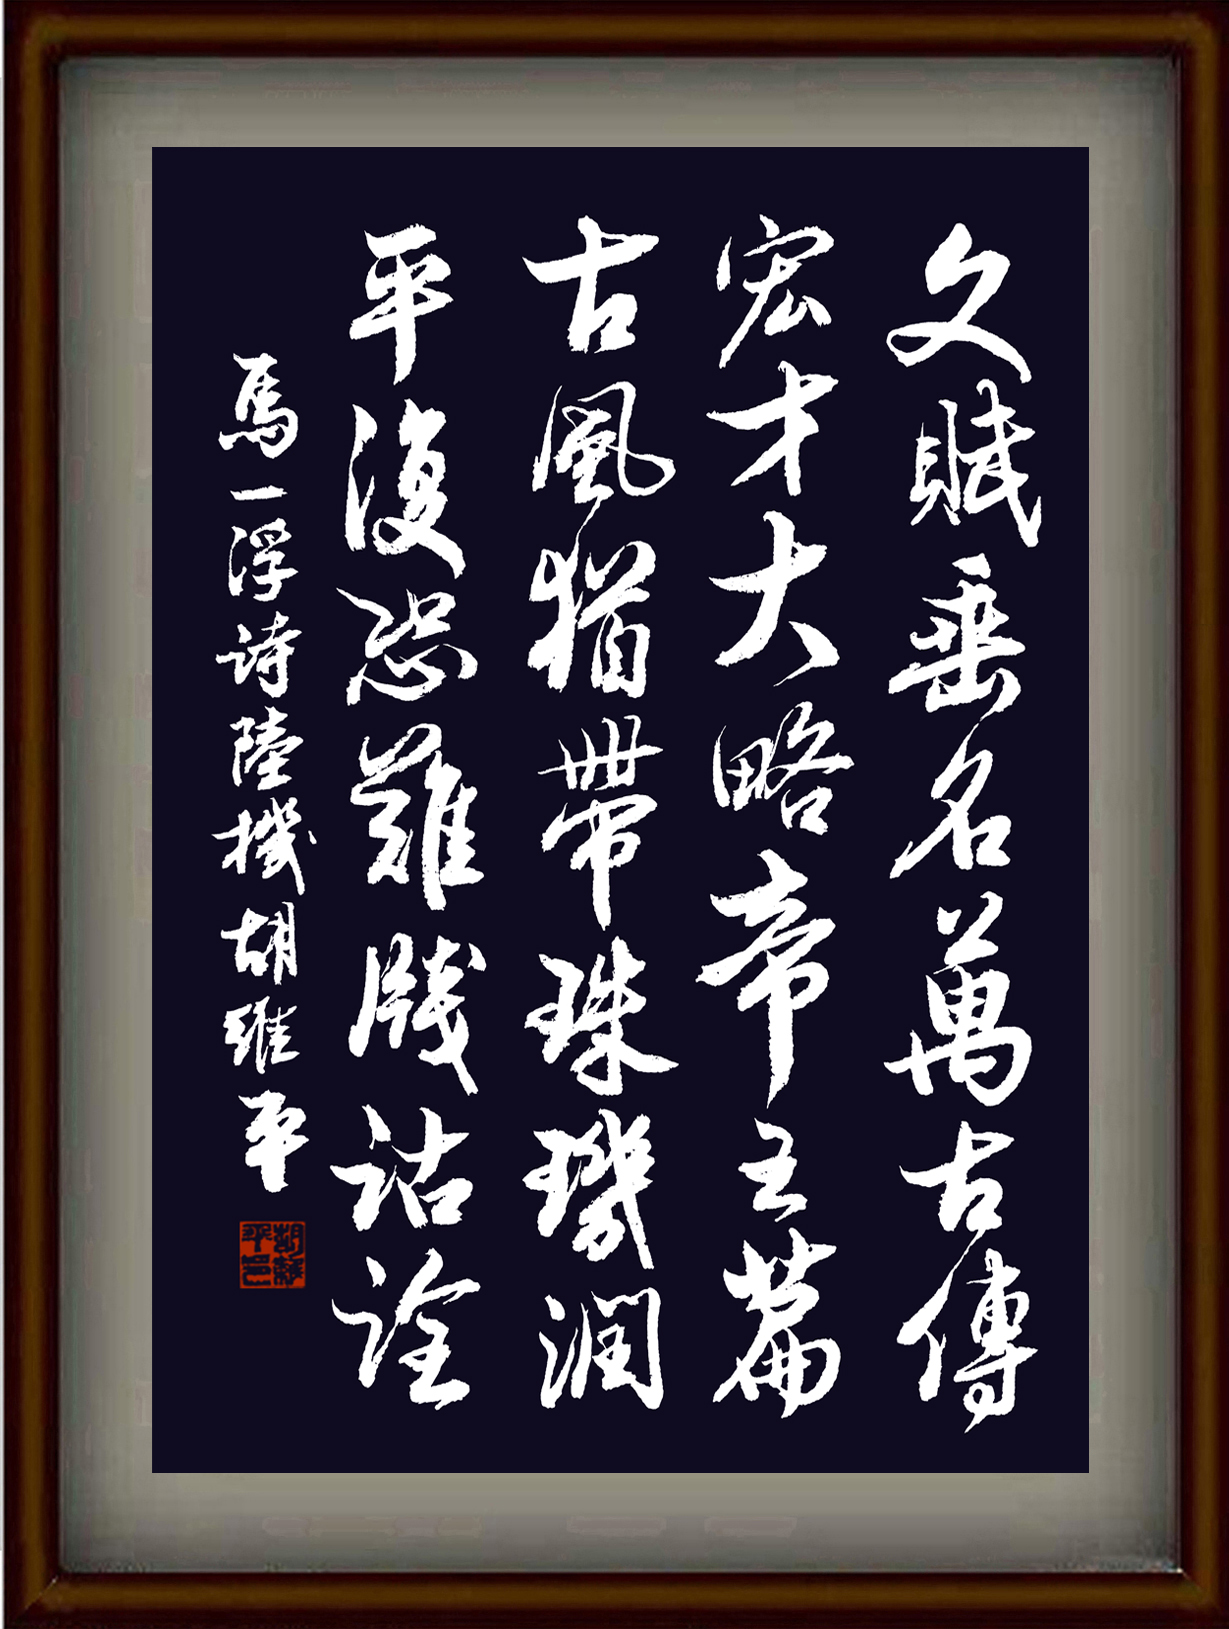 文賦垂名萬古傳
宏才大略帝王篇
古風猶帶珠璣潤
平復恐難牋詁詮
馬一浮詩陸機胡維平
胡維平印